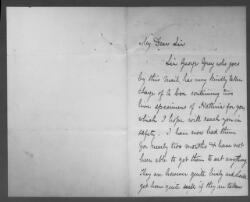 My Dear Sir
Sir George Grey who goes
by this mail has very kindly taken
charge of a box containing two
live specimens of Hatteria for you
which I hope will reach you in
safety. I have now had them
for nearly two months & have not
been able to get them to eat anything
They are however quite lively and
get on quite well if they are taken